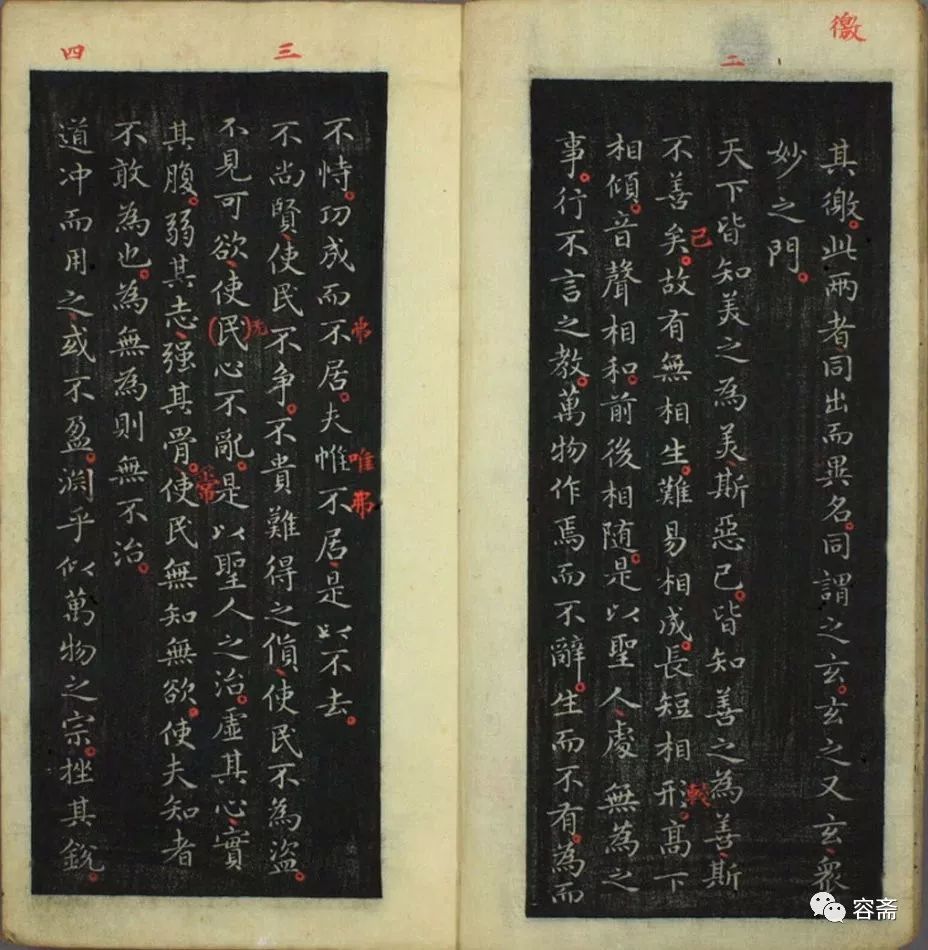 徼
二
其徼。此兩者同出而異名。同謂之玄。玄之又玄、衆
妙之門。
天下皆知美之為美、斯惡已。皆知善之為善、斯
不善矣。故有無相生。難易相成。長短相形。高下
已
相傾。音聲相和。前後相隨。是以聖人、處無為之
事。行不言之教。萬物作焉而不辭。生而不有。為而
三
四
不恃。功成而不居。夫惟不居、是以不去。
弗
唯
弗
不尚賢、使民不爭。不貴難得之貨、使民不為盜。
不見可欲、使(民)心不亂。是以聖人之治。虛其心、實
其腹。弱其志、強其骨。使民無知無欲。使夫知者
常
不敢為也。為無為則無不治。
道冲而用之、或不盈。淵乎似萬物之宗。挫其銳。
容斋